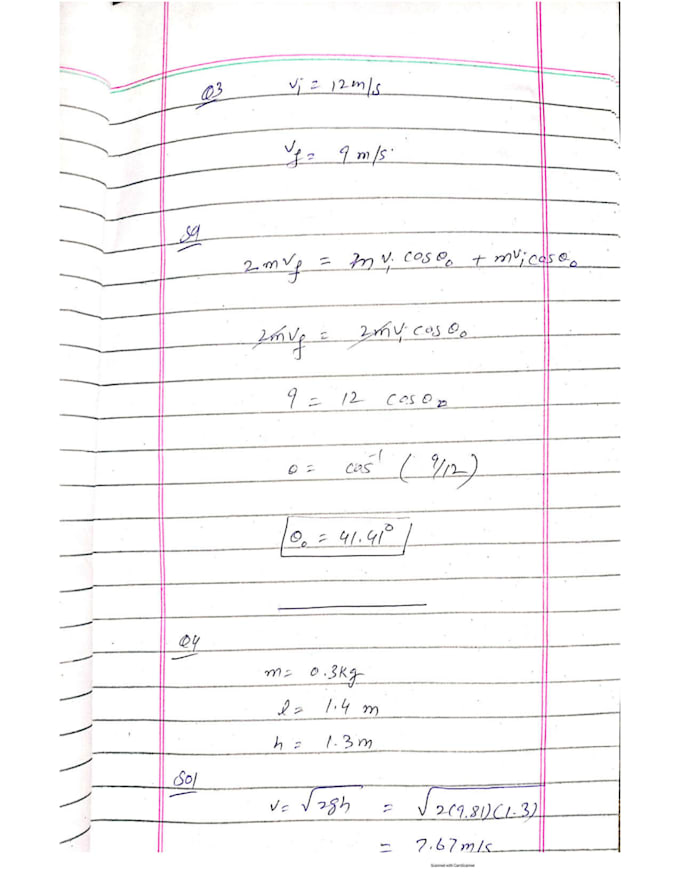 Q3 vi = 12m/s
vf = 9 m/s.
Sol
2mvf = mvi cosθo + mvi cosθo
2mvf = 2mvi cosθo
9 = 12 cosθo
θ = cos⁻¹ (9/12)
θo = 41.41°
Q4
m= 0.3kg
l= 1.4 m
h = 1.3m
Sol
v= √2gh = √2(9.81)(1.3)
= 7.67m/s
Scanned with CamScanner